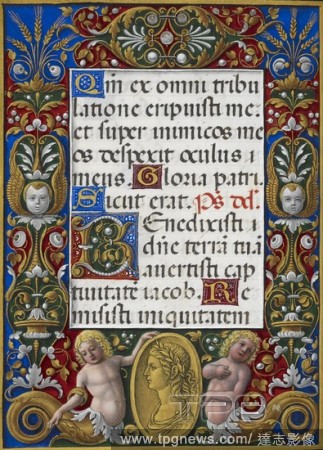 Qm̄ ex omni tribu
latione eripuisti me:
et super inimicos me
os despexit oculus
meus. Gloria patri.
Sicut erat. Ps
Benedixisti
dn̄e terrā tuā
auertisti cap
tiuitatē iacob. Re
misisti iniquitatem
TPG
www.tpgnews.com / 達志影像